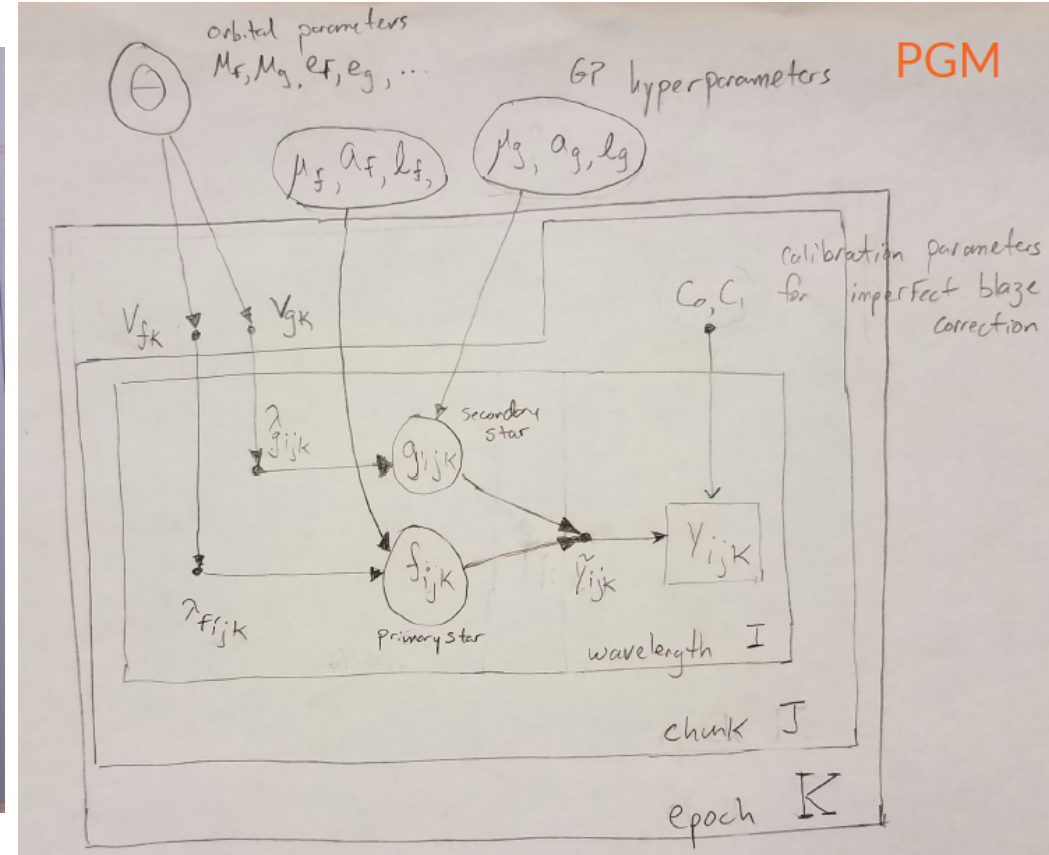 PGM
orbital parameters
M_f, M_g, e_f, e_g, ...
Θ
GP hyperparameters
μ_f, a_f, l_f,
μ_g, a_g, l_g
calibration parameters
for imperfect blaze
correction
C_0, C_1
V_fK
V_gK
λ_gijK
secondary
star
g_ijK
f_ijK
primary star
λ_fijK
ỹ_ijK
Y_ijK
wavelength I
chunk J
epoch K